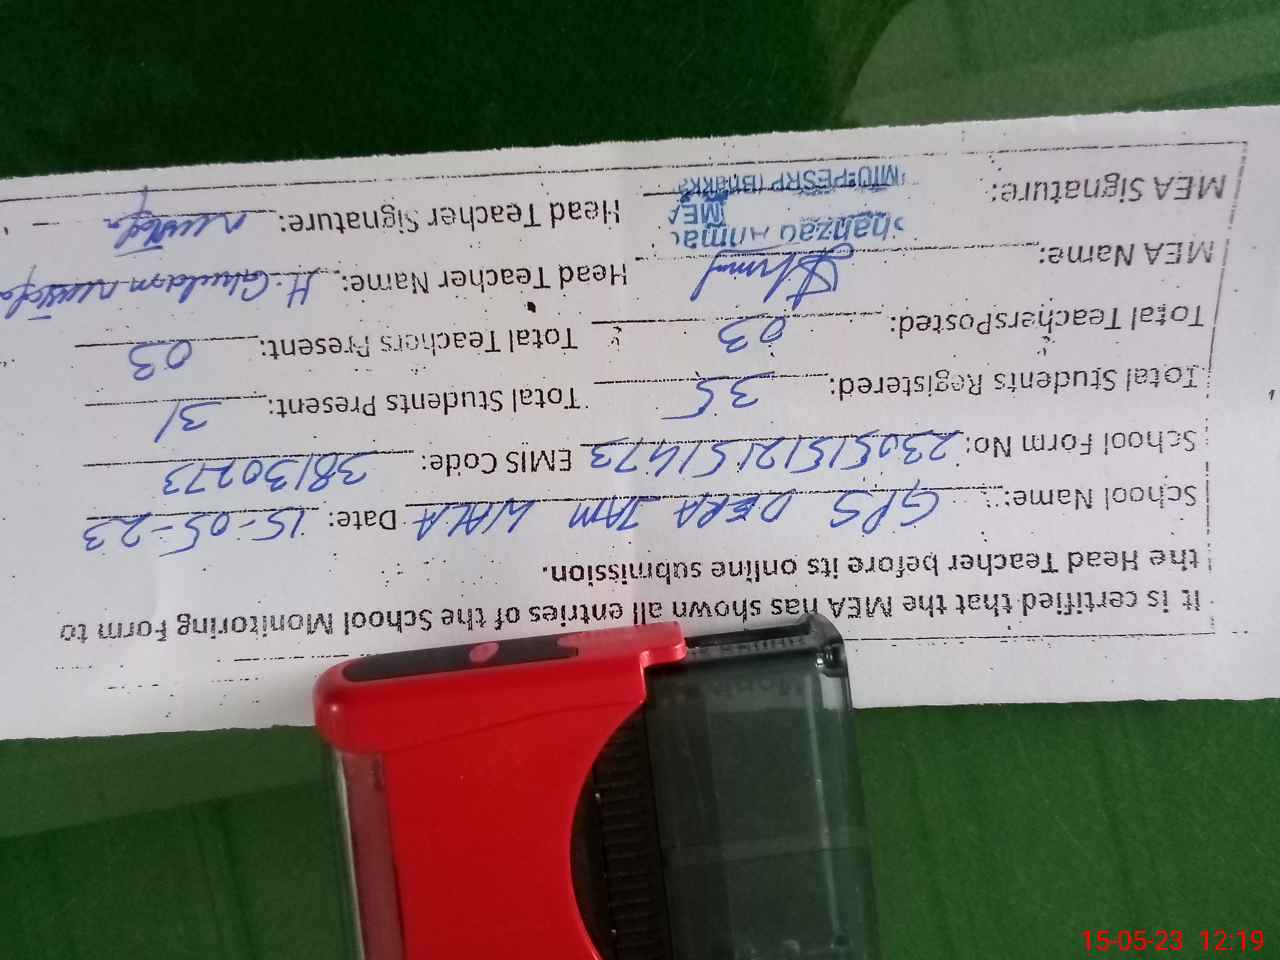 It is certified that the MEA has shown all entries of the School Monitoring Form to
the Head Teacher before its online submission.
School Name: GPS DERA JAM WALA Date: 15-05-23
School Form No: 23051512151473 EMIS Code: 38130273
Total Students Registered: 35 Total Students Present: 31
Total TeachersPosted: 03 Total Teachers Present: 03
MEA Name: Head Teacher Name: H. Ghulam
MEA Signature: Head Teacher Signature:
MEA
MIU-PESRP
15-05-23 12:19